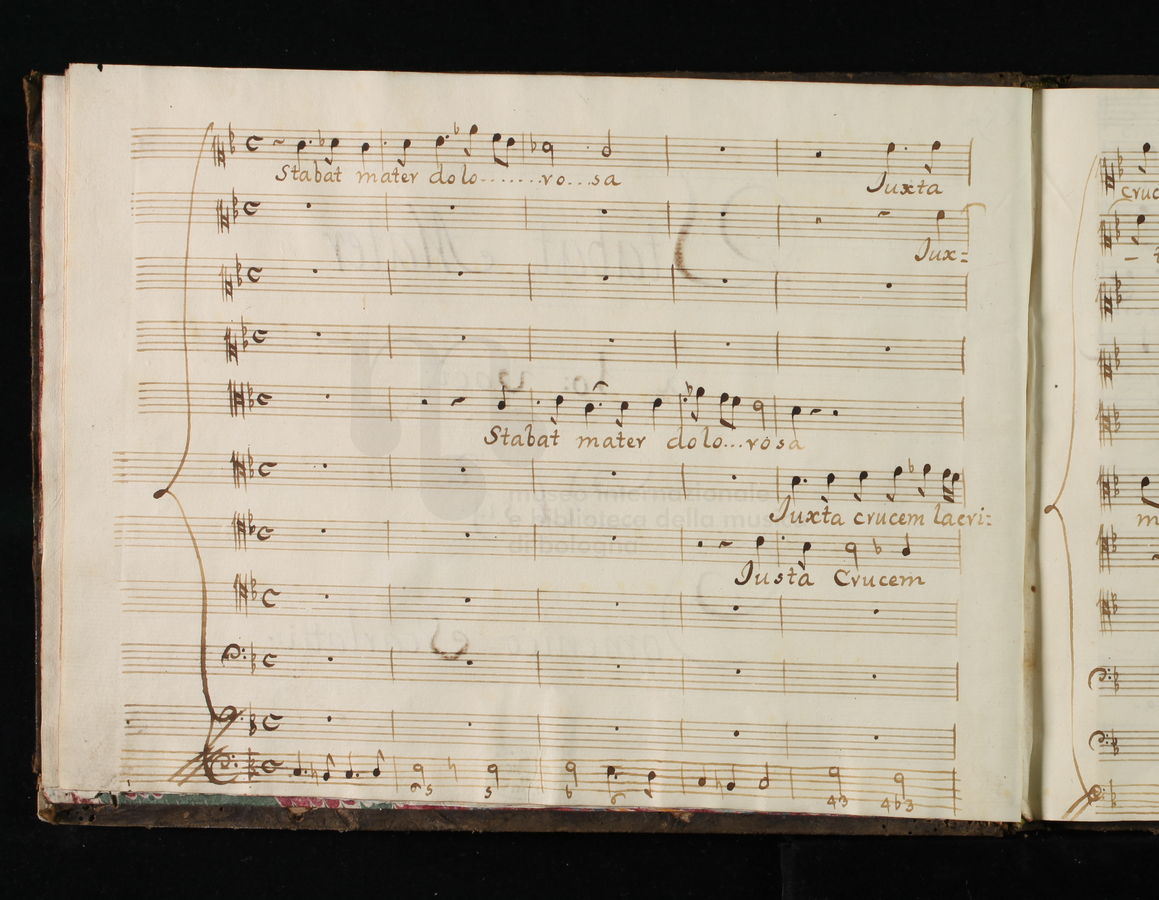 Stabat mater dolo.......ro...sa Juxta
Jux=
Stabat mater dolo...rosa
Juxta crucem lacri:
Justa Crucem
6 5 5 6 6 43 4b3
museo internazionale
e biblioteca della musica
di bologna
cruc
m